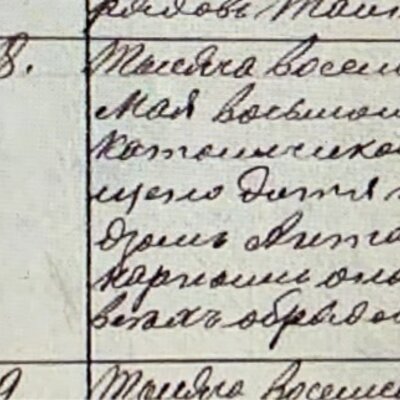 рядовъ Таин
8. Тысяча восем
мая восьмого
католической
щено дитя
домъ Анто
карполи
всѣхъ обрядо
9 Тысяча восем